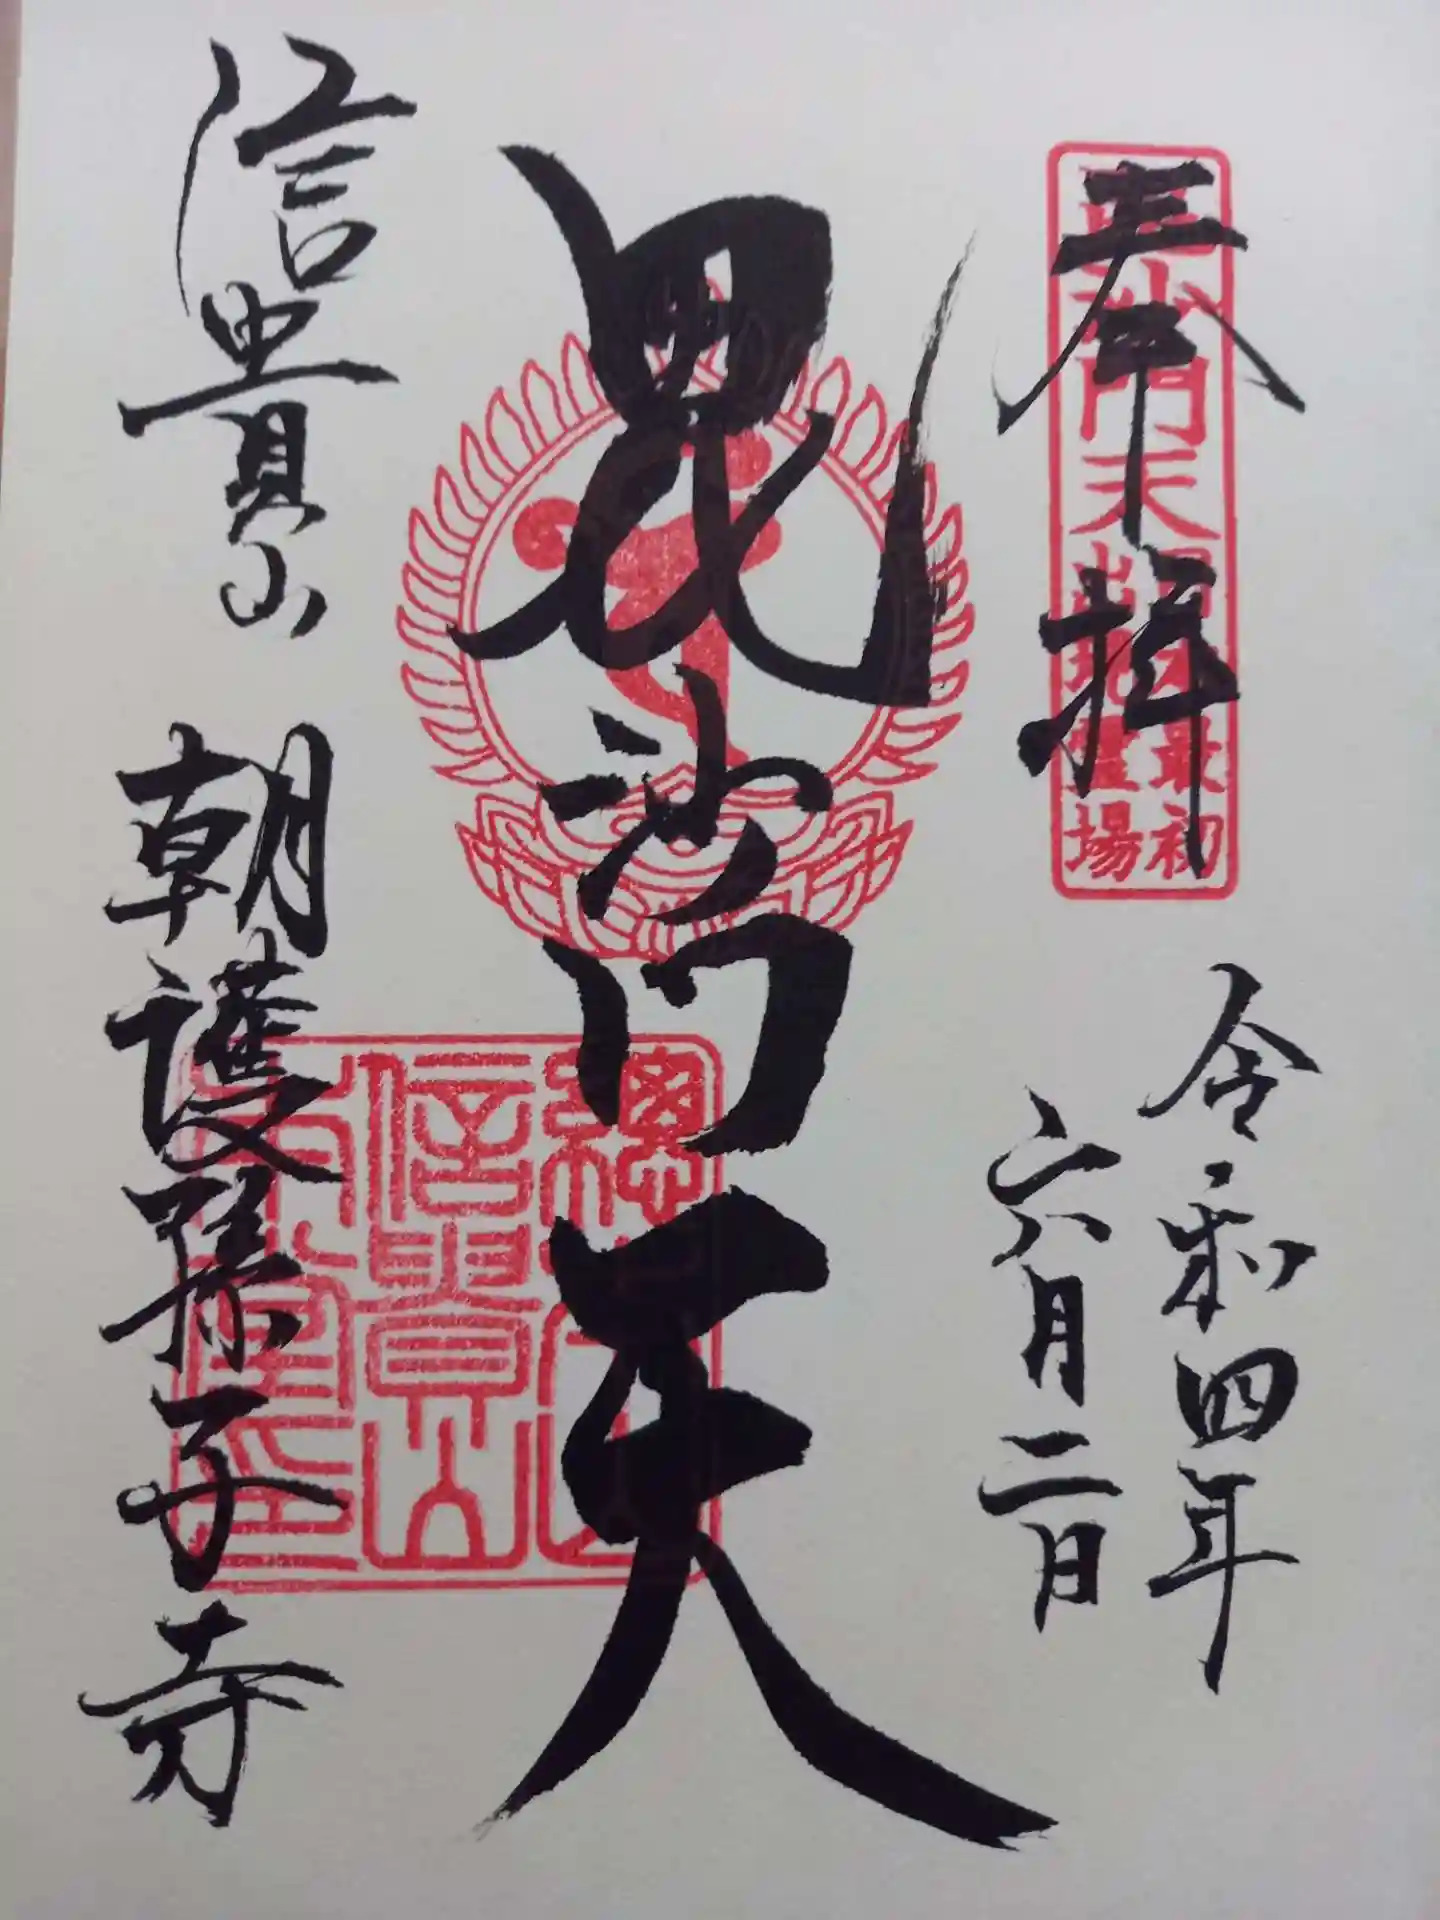 奉拝
毘沙門天
最初
霊場
令和四年
六月二日
毘沙門天
信貴山
朝護孫子寺
總
信貴山
印